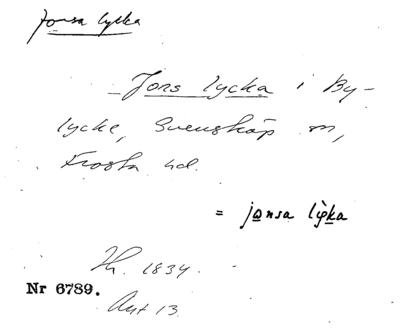 Jonsa lycka
Jons lycka i By-
lycke, Svensköp sn,
Frosta hd.
= jonsa lỳka
1834.
Nr 6789.
Avt 13.